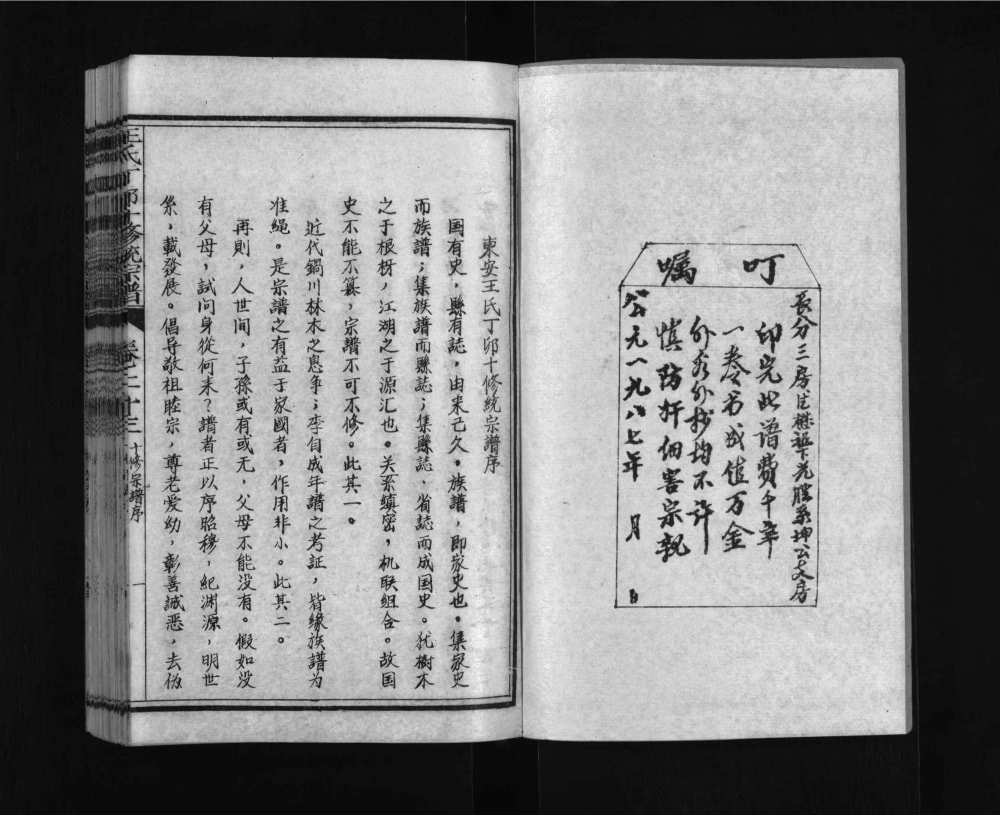 叮嘱
長分三房
印完此谱費千辛
一卷书成值万金
外名外抄均不许
慎防奸佃害宗親
公元一九八七年 月 日
東安王氏丁卯十修統宗譜序
国有史，縣有誌，由来己久。族譜，即家史也。集家史
而族譜；集族譜而縣誌；集縣誌、省誌而成国史。犹樹木
之于根枒，江湖之于源汇也。关系縝密，机联組合。故国
史不能不纂，宗譜不可不修。此其一。
近代鍋川林木之息争；李自成年譜之考証，皆缘族譜为
准绳。是宗譜之有益于家國者，作用非小。此其二。
再則，人世间，子孫或有或无，父母不能没有。假如没
有父母，試问身從何来？譜者正以序昭穆，紀渊源，明世
系，載發展。倡导敬祖睦宗，尊老爱幼，彰善诫恶，去伪
王氏丁卯十修統宗譜
卷二十三
十修宗譜序
一